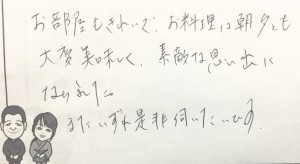 お部屋もきれいで、お料理は朝夕とも
大変美味しく、素敵な思い出に
なりました。
またいずれ是非伺いたいです。